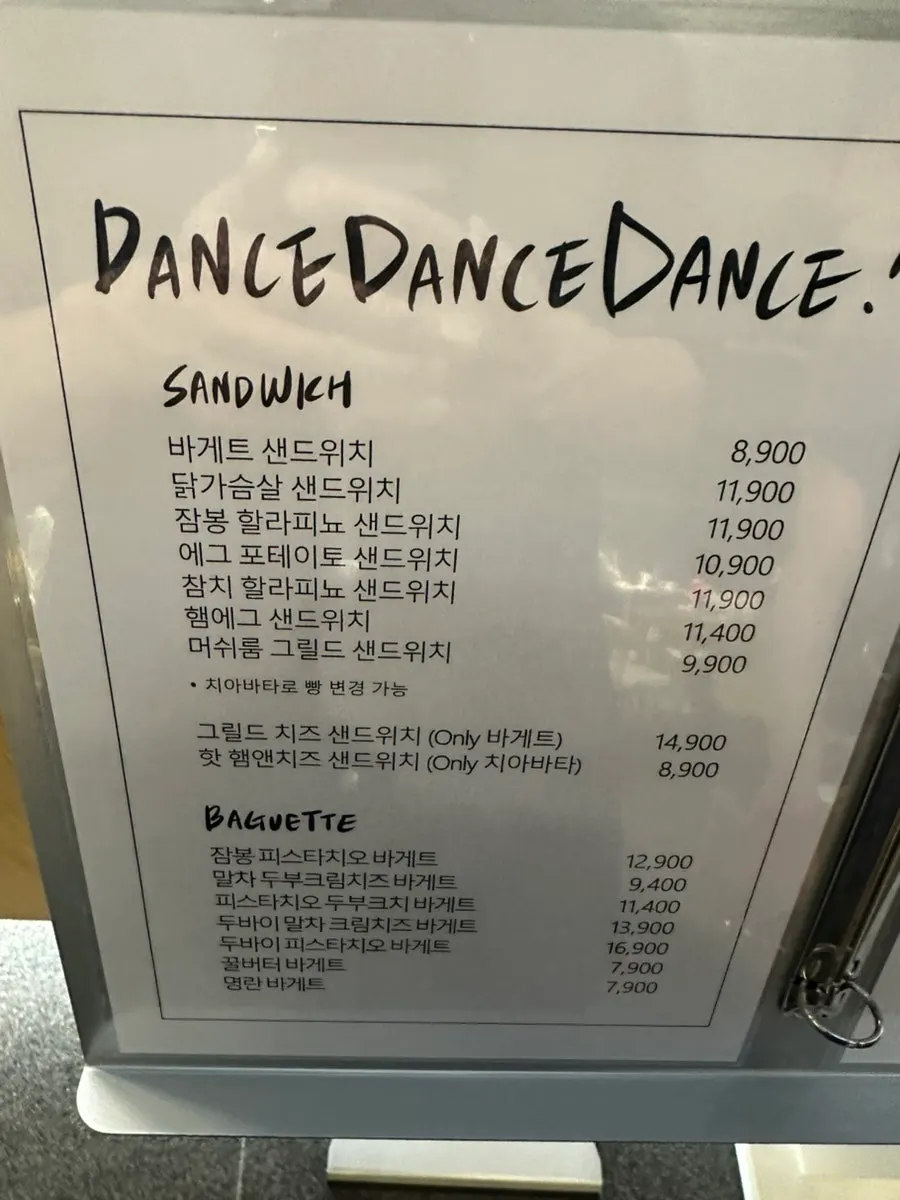 DANCEDANCEDANCE.
SANDWICH
바게트 샌드위치 8,900
닭가슴살 샌드위치 11,900
잠봉 할라피뇨 샌드위치 11,900
에그 포테이토 샌드위치 10,900
참치 할라피뇨 샌드위치 11,900
햄에그 샌드위치 11,400
머쉬룸 그릴드 샌드위치 9,900
• 치아바타로 빵 변경 가능
그릴드 치즈 샌드위치 (Only 바게트) 14,900
핫 햄앤치즈 샌드위치 (Only 치아바타) 8,900
BAGUETTE
잠봉 피스타치오 바게트 12,900
말차 두부크림치즈 바게트 9,400
피스타치오 두부크치 바게트 11,400
두바이 말차 크림치즈 바게트 13,900
두바이 피스타치오 바게트 16,900
꿀버터 바게트 7,900
명란 바게트 7,900